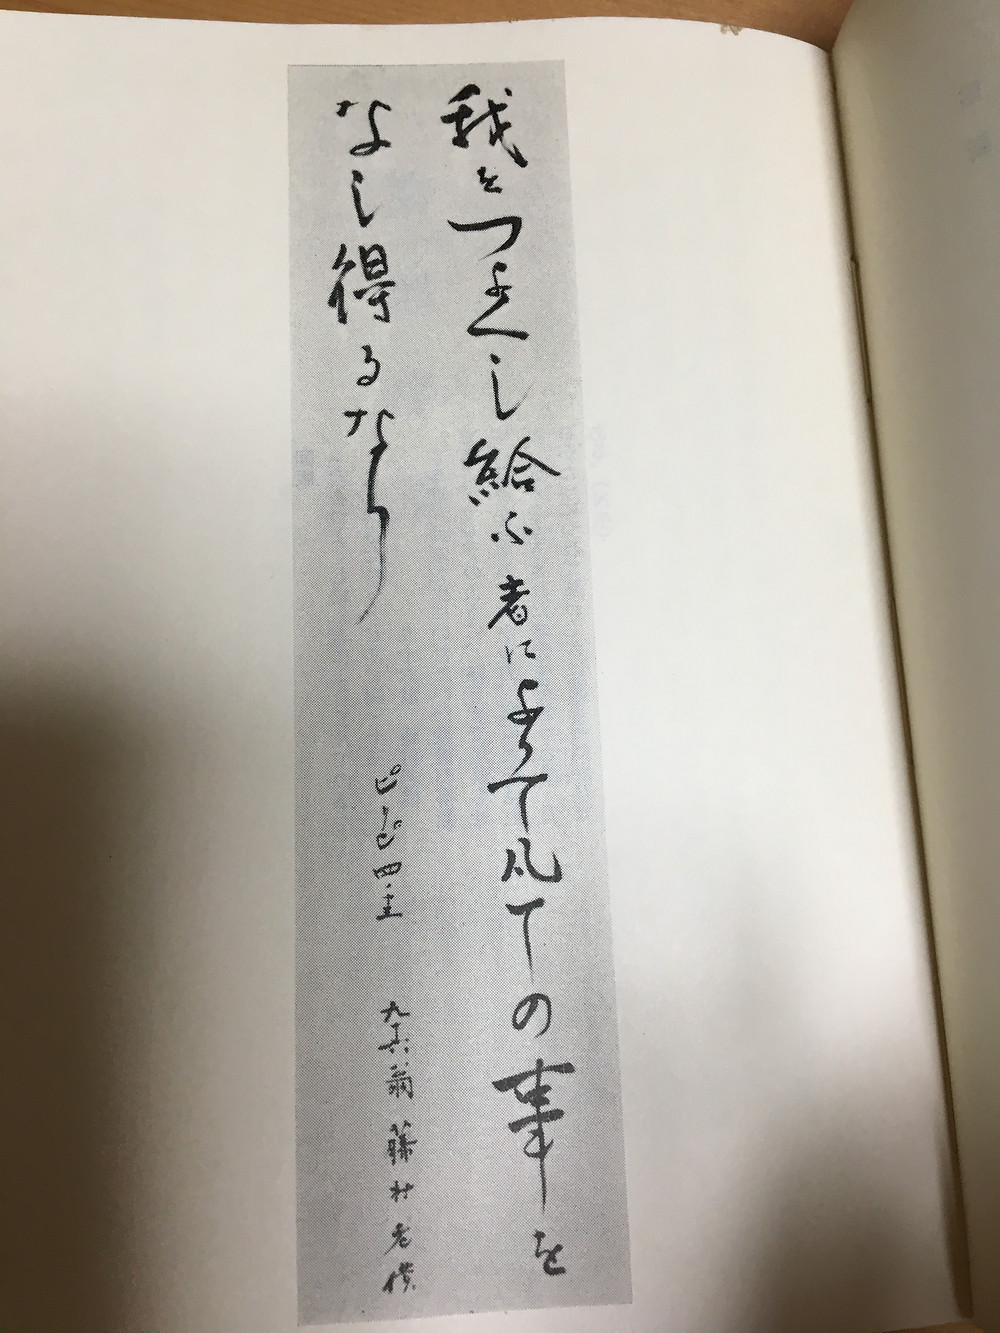 我をつよくし給ふ者によりて凡ての事を
なし得るなり
ピリピ四・十三
九十六翁 藤村老僕